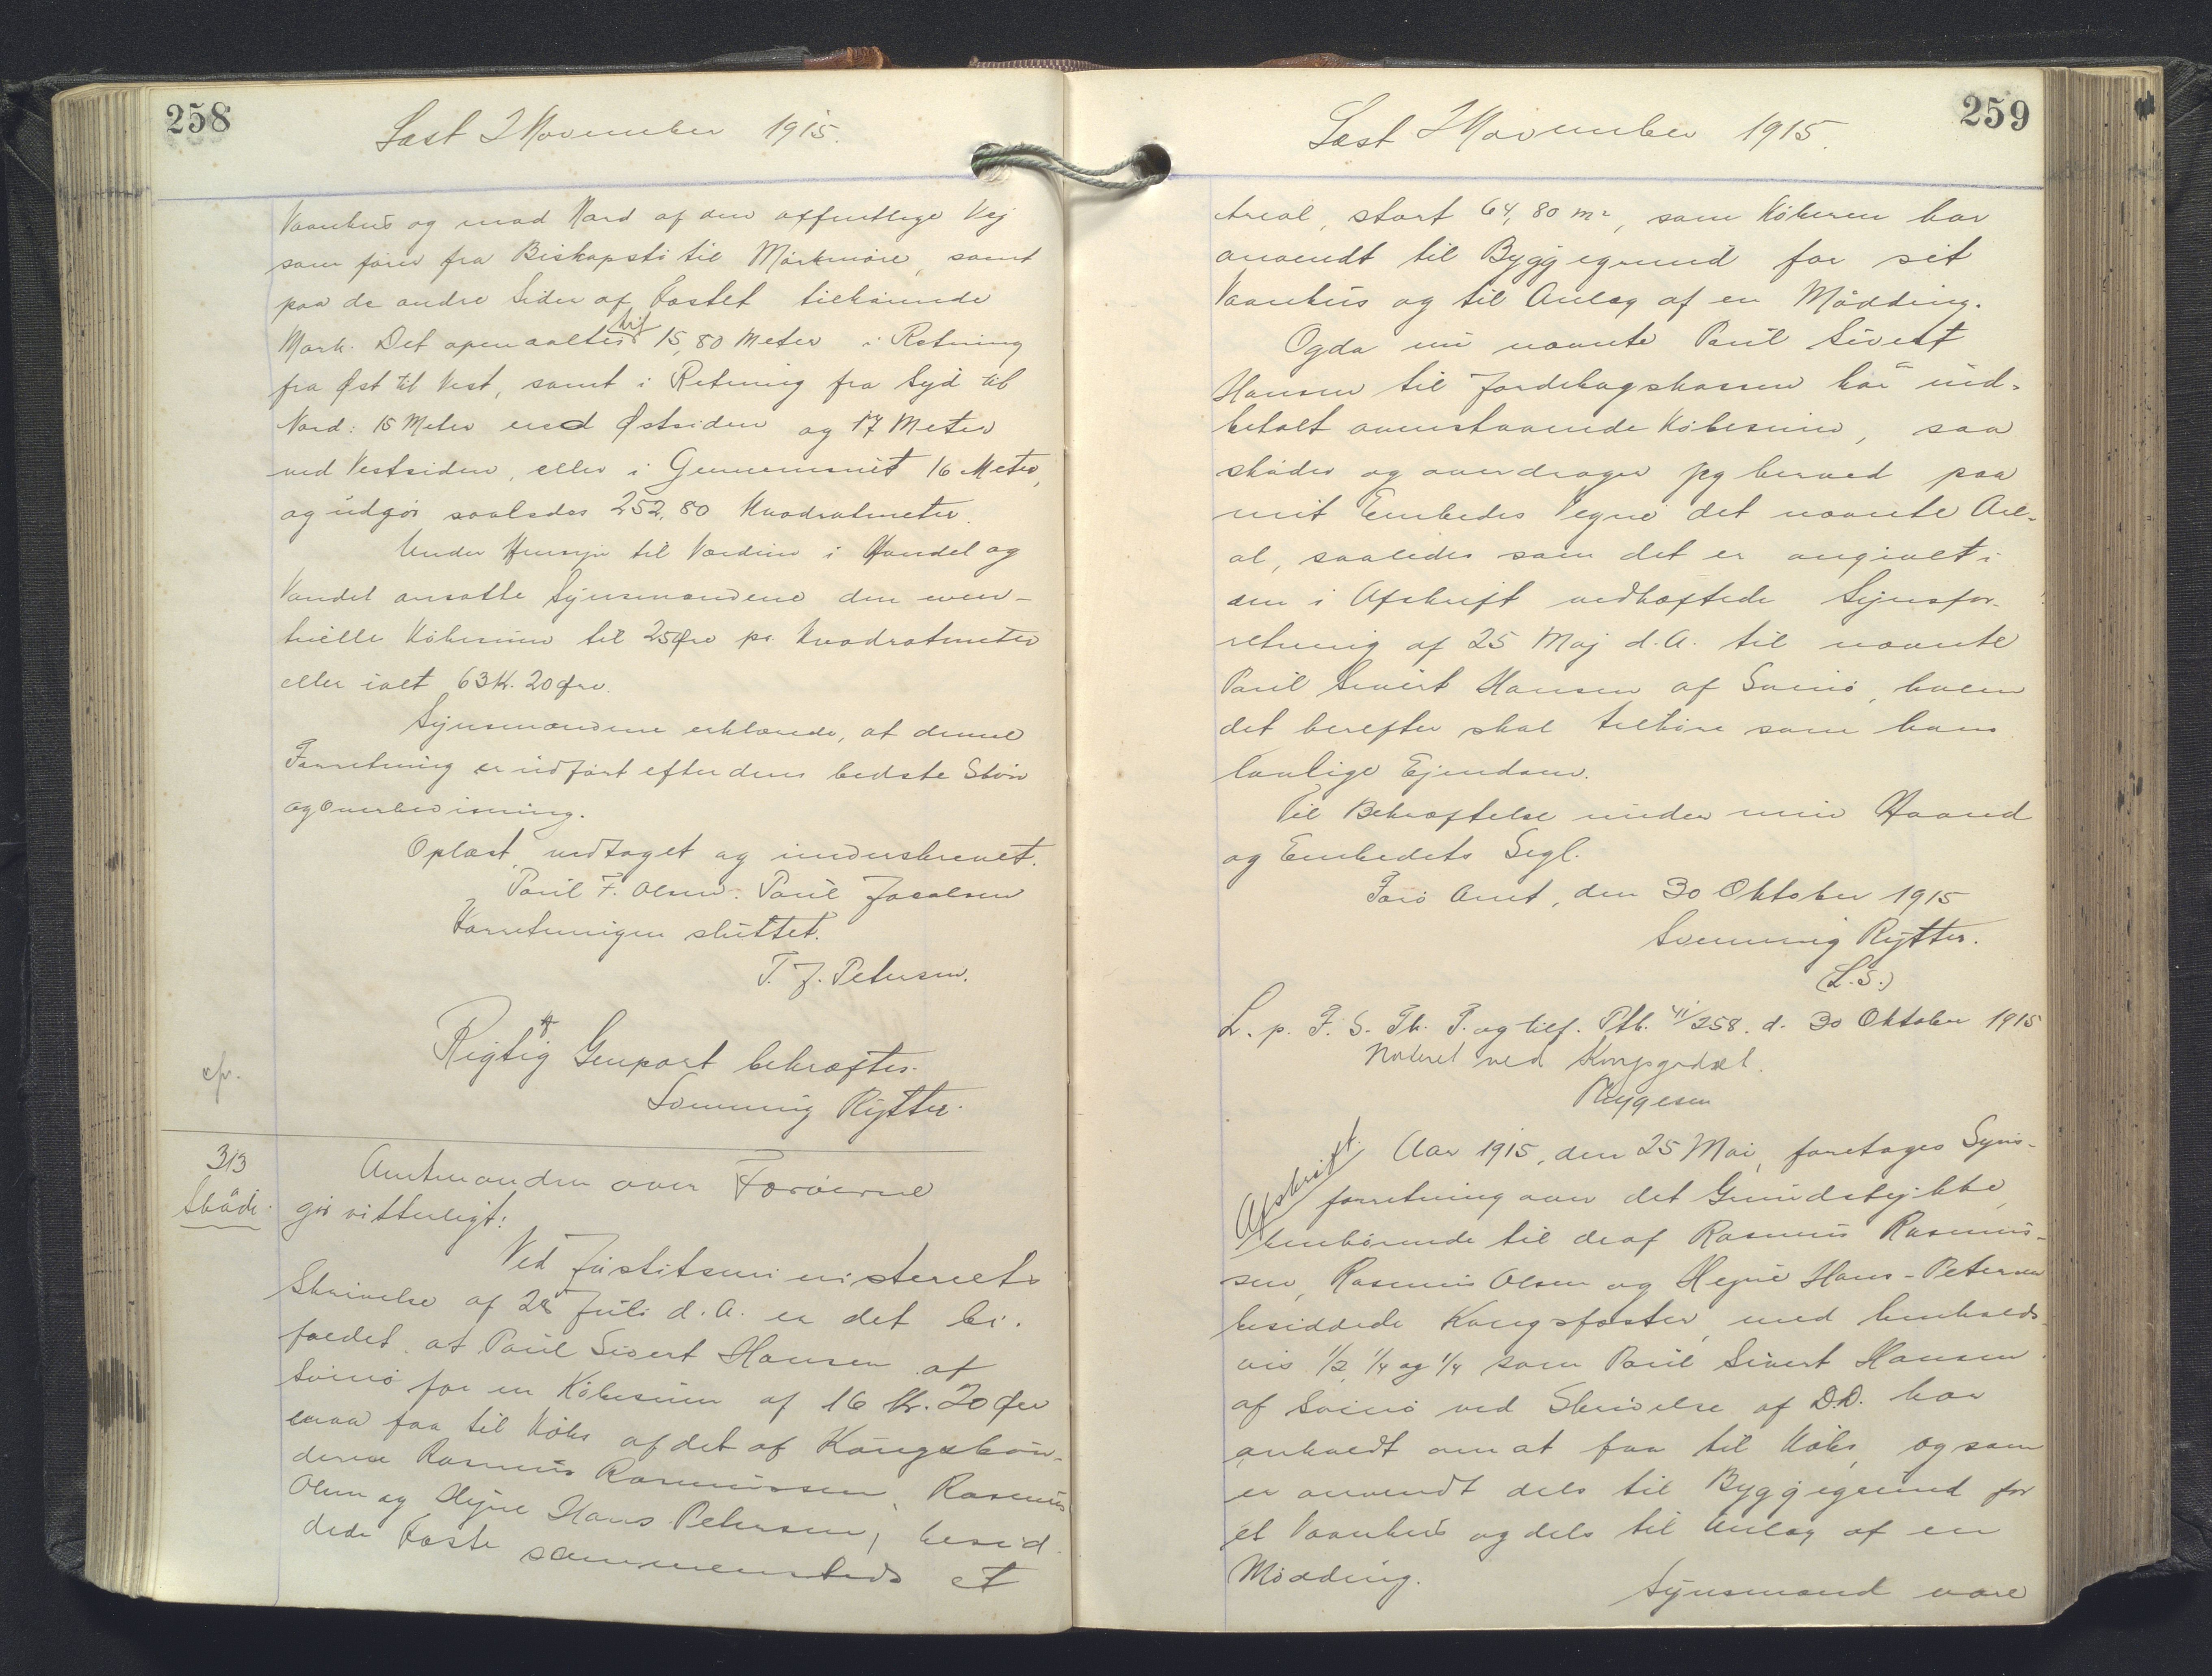 258
Læst 2 November 1915.
Vaanhus og mod Nord af den offentlige Vej
som fører fra Biskopsti til Mørkmøre, samt
paa de andre Sider af Fæstet tilhørende
Mark. Det opmaaltes til 15,80 Meter i Retning
fra Øst til Vest, samt i Retning fra Syd til
Nord: 15 Meter ved Østsiden og 17 Meter
ved Vestsiden, eller i Gennemsnit 16 Meter,
og udgør saaledes 252,80 Kvadratmeter.
Under Hensyn til Værdien i Handel og
Vandel ansatte Synsmændene den even-
tuelle Købesum til 25 Øre pr. Kvadratmeter
eller ialt 63 Kr. 20 Øre.
Synsmændene erklærede, at denne
Forretning er udført efter deres bedste Skøn
og Overbevisning.
Oplæst, vedtaget og underskrevet.
Poul F. Olsen. Poul Jacobsen
Forretningen sluttet.
T. J. Petersen.
Rigtig Genpart bekræftes.
Svenning Rytter.
cfr.
313
Skøde.
Amtmanden over Færøerne
gør vitterligt:
Ved Justitsministeriets
Skrivelse af 28 Juli d.A. er det bi-
faldet, at Poul Sivert Hansen af
Svinø for en Købesum af 16 Kr. 20 Øre
maa faa til Købs af det af Kongsbøn-
derne Rasmus Rasmussen, Rasmus
Olsen og Hejne Hans Petersen, besid-
dede Fæste sammesteds et
259
Læst 2 November 1915.
Areal, stort 64,80 m², som Køberen har
anvendt til Byggegrund for sit
Vaanhus og til Anlæg af en Mødding.
Og da nu nævnte Poul Sivert
Hansen til Jordebogskassen har ind-
betalt ovenstaaende Købesum, saa
skøder og overdrager jeg herved paa
mit Embedes Vegne det nævnte Are-
al, saaledes som det er angivet i
den i Afskrift vedhæftede Synsfor-
retning af 25 Maj d.A. til nævnte
Poul Sivert Hansen af Svinø, hvem
det herefter skal tilhøre som hans
lovlige Ejendom.
Til Bekræftelse under min Haand
og Embedets Segl.
Færø Amt, den 30 Oktober 1915
Svenning Rytter.
(L.S.)
L. p. F. S. Th. T. og tilf. Ptb. 41/258. d. 30 Oktober 1915
Noteret ved Kongsgodset.
Afskrift.
Aar 1915, den 25 Mai, foretages Syns-
forretning over det Grundstykke,
henhørende til de af Rasmus Rasmus-
sen, Rasmus Olsen og Hejne Hans-Petersen
besiddede Kongsfæster, med henholds-
vis 1/2, 1/4 og 1/4 som Poul Sivert Hansen
af Svinø ved Skrivelse af D.D. har
anholdt om at faa til Købs, og som
er anvendt dels til Byggegrund for
et Vaanhus og dels til Anlæg af en
Mødding.
Synsmænd vare